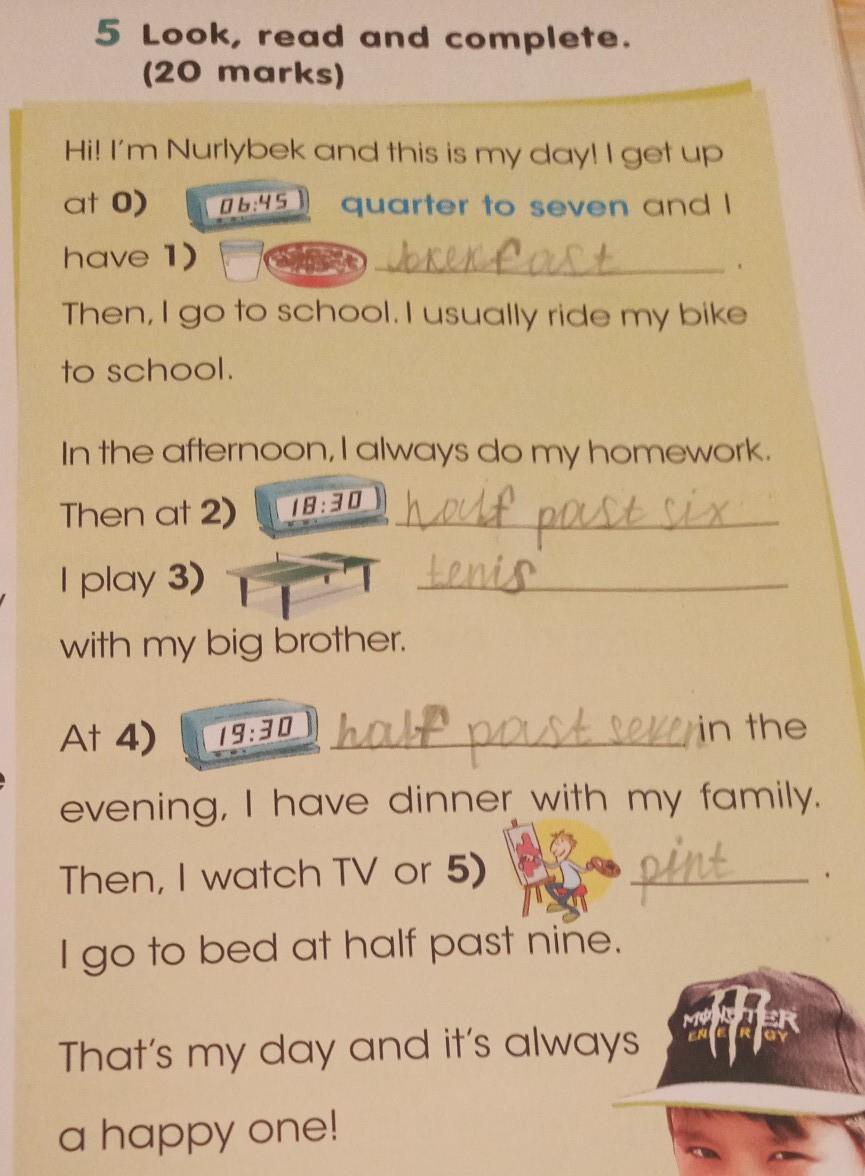 5 Look, read and complete.
(20 marks)
Hi! I'm Nurlybek and this is my day! I get up
at 0) 06:45 quarter to seven and I
have 1) brekfast .
Then, I go to school. I usually ride my bike
to school.
In the afternoon, I always do my homework.
Then at 2) 18:30 half past six
I play 3) tenis
with my big brother.
At 4) 19:30 half past seven in the
evening, I have dinner with my family.
Then, I watch TV or 5) pint .
I go to bed at half past nine.
That's my day and it's always
a happy one!
MONSTER
ENERGY